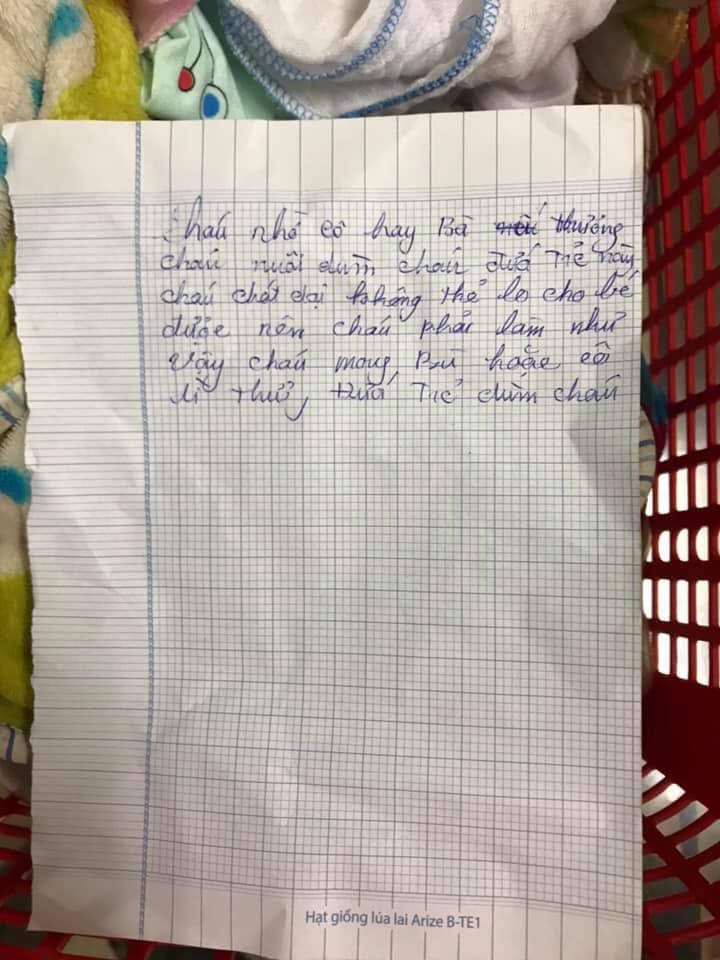 Cháu nhờ cô hay Bà thương
cháu nuôi dùm cháu đứa Trẻ này
cháu chót dại không thể lo cho bé
được nên cháu phải làm như
vậy cháu mong Bà hoặc cô
đứa Trẻ dùm cháu
Hạt giống lúa lai Arize B-TE1